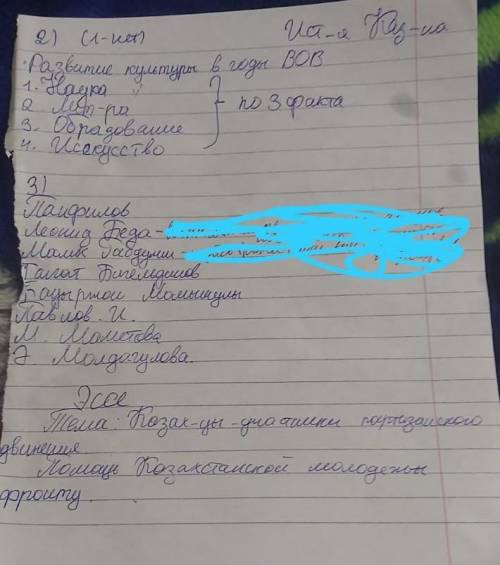 2) (1-нот) Ист-я Каз-на
Развитие културы в годы ВОВ
1. Наука
2. Лит-ра по 3 факта
3. Образование
4. Исскуство
3)
Панфилов
Леонид Беда -
Малик Габдулин -
Талгат Бигелдинов
Бауыржан Момышулы
Павлов И.
М. Маметова
Э. Молдагулова.
Эссе
Тема: Казах-цы - участники партизанского
движения
Помощь Казахстанской молодежы
фронту.